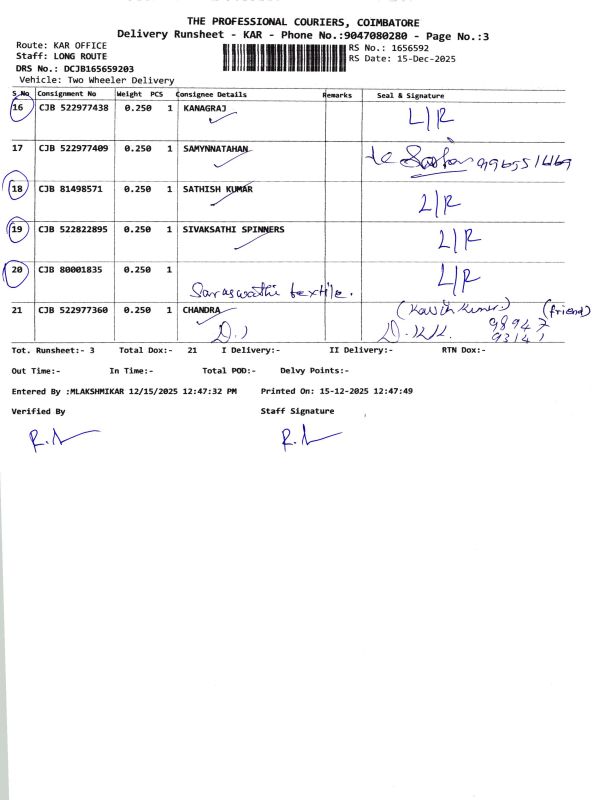 THE PROFESSIONAL COURIERS, COIMBATORE
Delivery Runsheet - KAR - Phone No.:9047080280 - Page No.:3
Route: KAR OFFICE RS No.: 1656592
Staff: LONG ROUTE RS Date: 15-Dec-2025
DRS No.: DCJB165659203
Vehicle: Two Wheeler Delivery
S.No Consignment No Weight PCS Consignee Details Remarks Seal & Signature
16 CJB 522977438 0.250 1 KANAGRAJ L/R
17 CJB 522977409 0.250 1 SAMYNNATAHAN
18 CJB 81498571 0.250 1 SATHISH KUMAR L/R
19 CJB 522822895 0.250 1 SIVAKSATHI SPINNERS L/R
20 CJB 80001835 0.250 1 L/R
Saraswathi textile.
21 CJB 522977360 0.250 1 CHANDRA (friend)
98947
Tot. Runsheet:- 3 Total Dox:- 21 I Delivery:- II Delivery:- RTN Dox:-
Out Time:- In Time:- Total POD:- Delvy Points:-
Entered By :MLAKSHMIKAR 12/15/2025 12:47:32 PM Printed On: 15-12-2025 12:47:49
Verified By Staff Signature